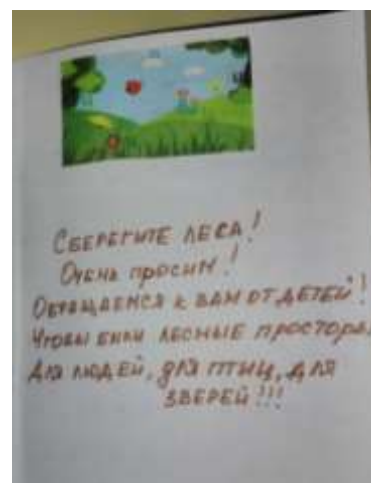 Сберегите леса!
Очень просим!
Обращаемся к вам от детей!
Чтобы были лесные просторы,
Для людей, для птиц, для
зверей!!!